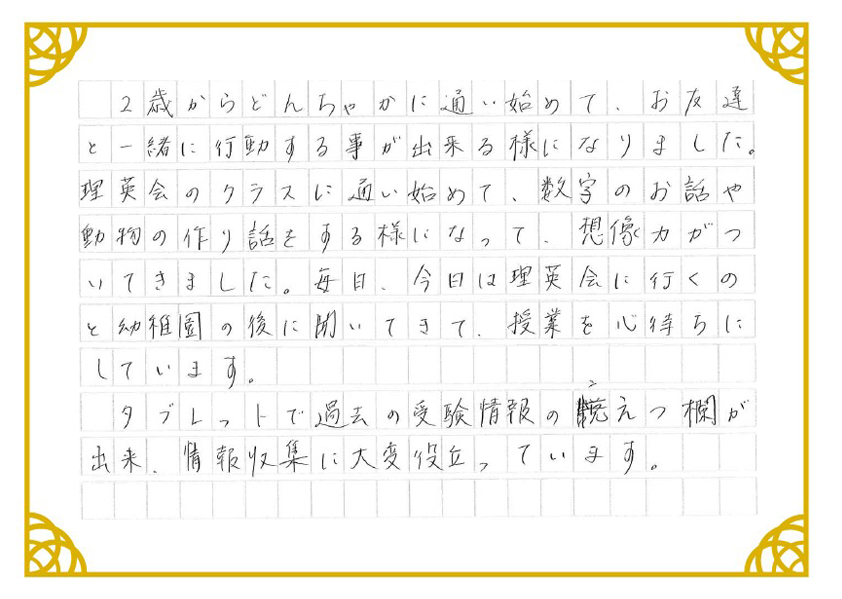 2歳からどんちゃかに通い始めて、お友達
と一緒に行動する事が出来る様になりました。
理英会のクラスに通い始めて、数字のお話や
動物の作り話をする様になって、想像力がつ
いてきました。毎日、今日は理英会に行くの
と幼稚園の後に聞いてきて、授業を心待ちに
しています。
タブレットで過去の受験情報のえつ欄が
出来、情報収集に大変役立っています。